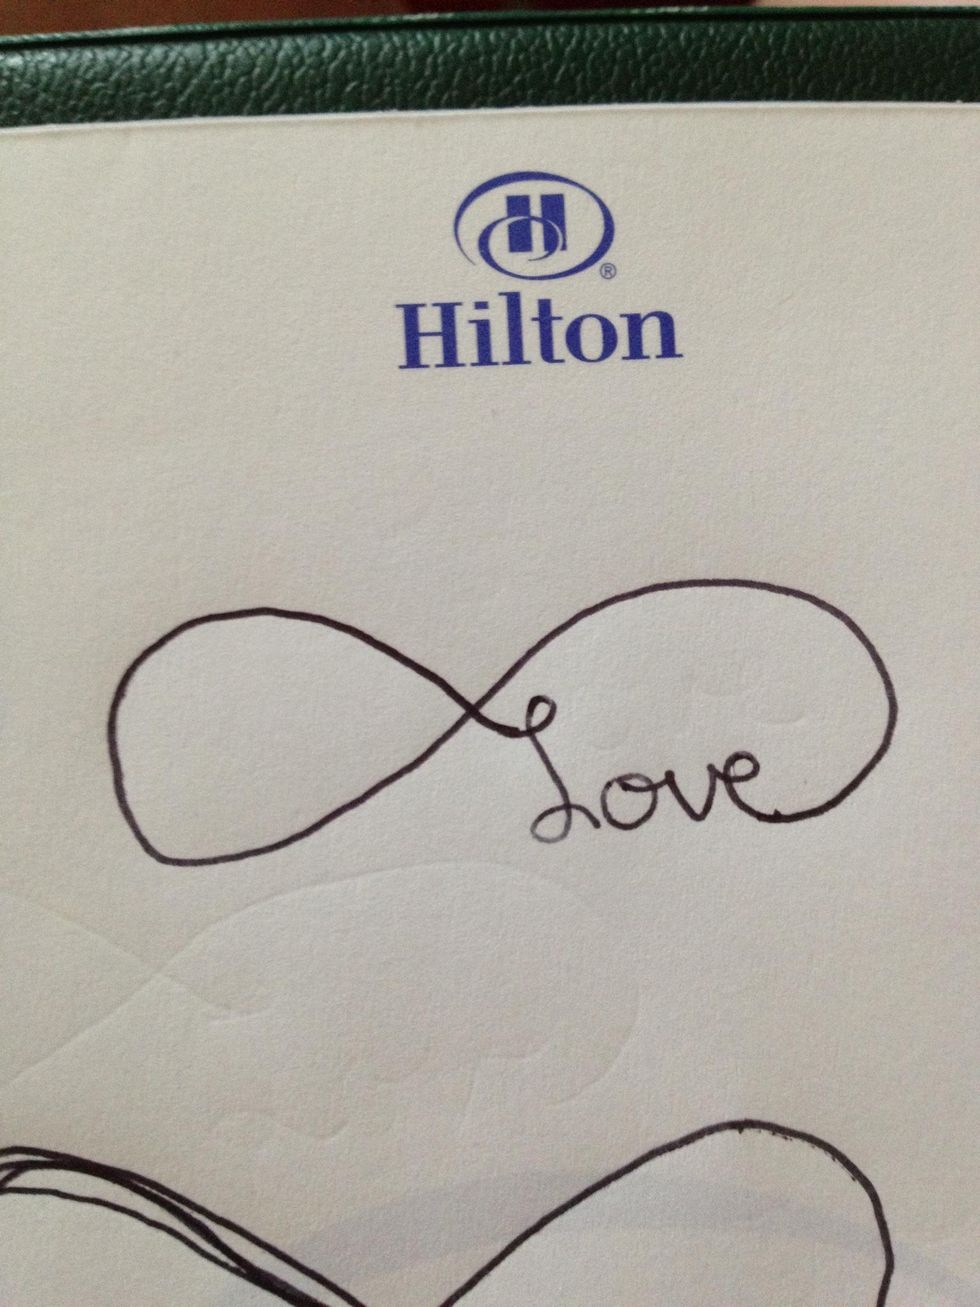 H®
Hilton
Love